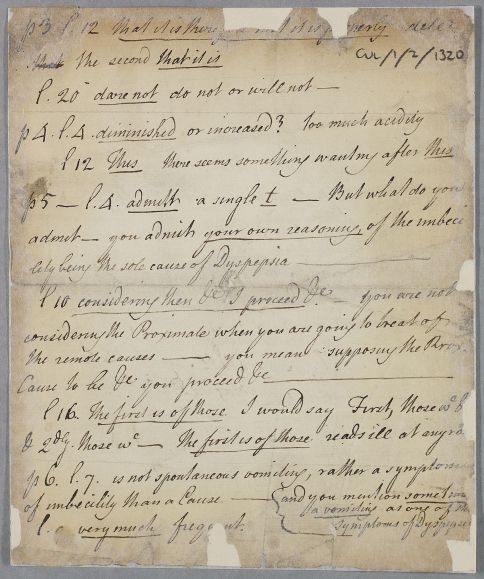 p3 l. 12 that it is there that it is properly dele
that the second that it is
CUL/1/2/1320
l. 20 dare not do not or will not —
p 4. l. 4. diminished or increased? too much acidity
l 12 This there seems something wanting after this
p5 — l. 4. admitt a single t — But what do you
admit — you admit your own reasoning, of the imbeci
lity being the sole cause of Dyspepsia —
l 10 considering then &c I proceed &c — you are not
considering the Proximate when you are going to treat of
the remote causes — you mean supposing the Prox.
Cause to be &c you proceed &c —
l 16. The first is of those I would say First, those wc.
& 2dly. those wc — The first is of those reads ill at any ra
p 6. l. 7. is not spontaneous vomiting, rather a symptom
of imbecility than a Cause — and you mention sometim
a vomiting as one of the
l. very much frequent. symptoms of Dyspepsi